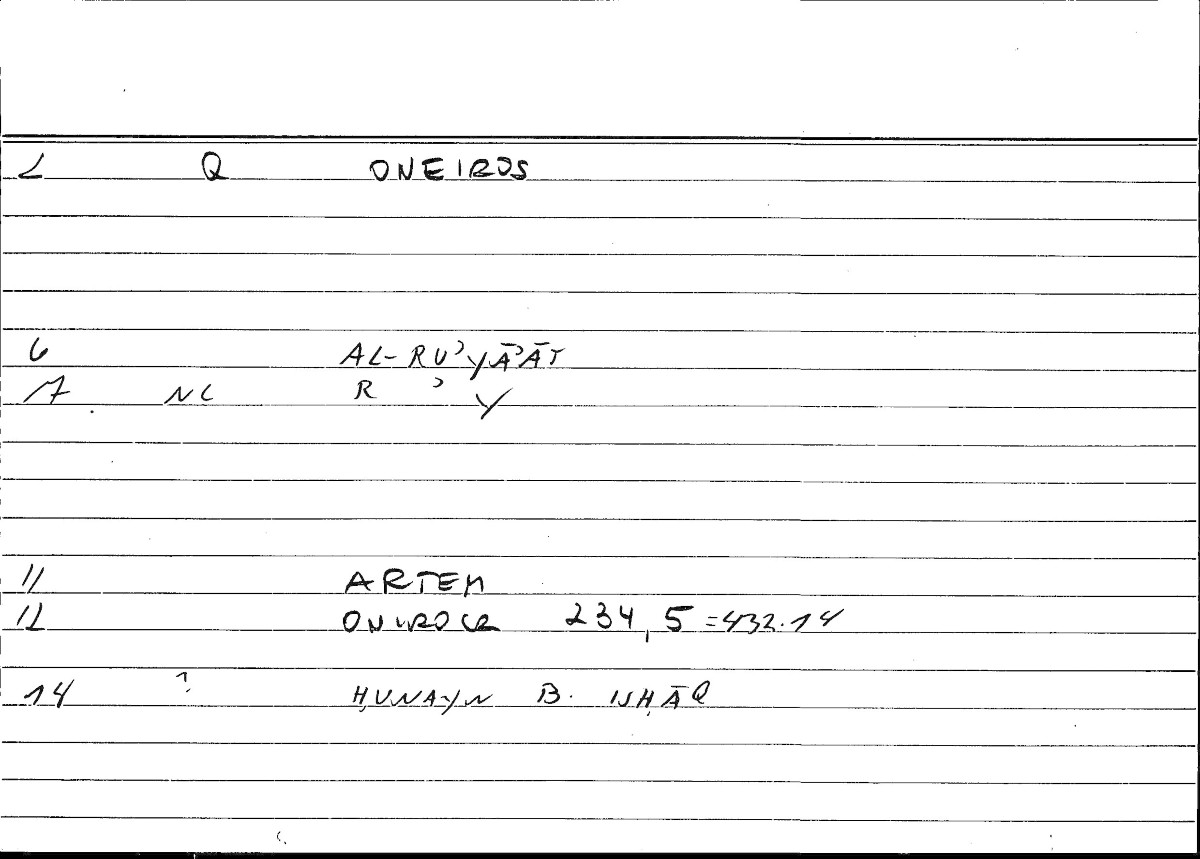 2 Q ONEIROS
6 AL-RUʾYĀʾĀT
17 NC R ʾ Y
11 ARTEM
12 ONIROCR 234,5 =432.14
14 ? ḤUNAYN B. ISḤĀQ